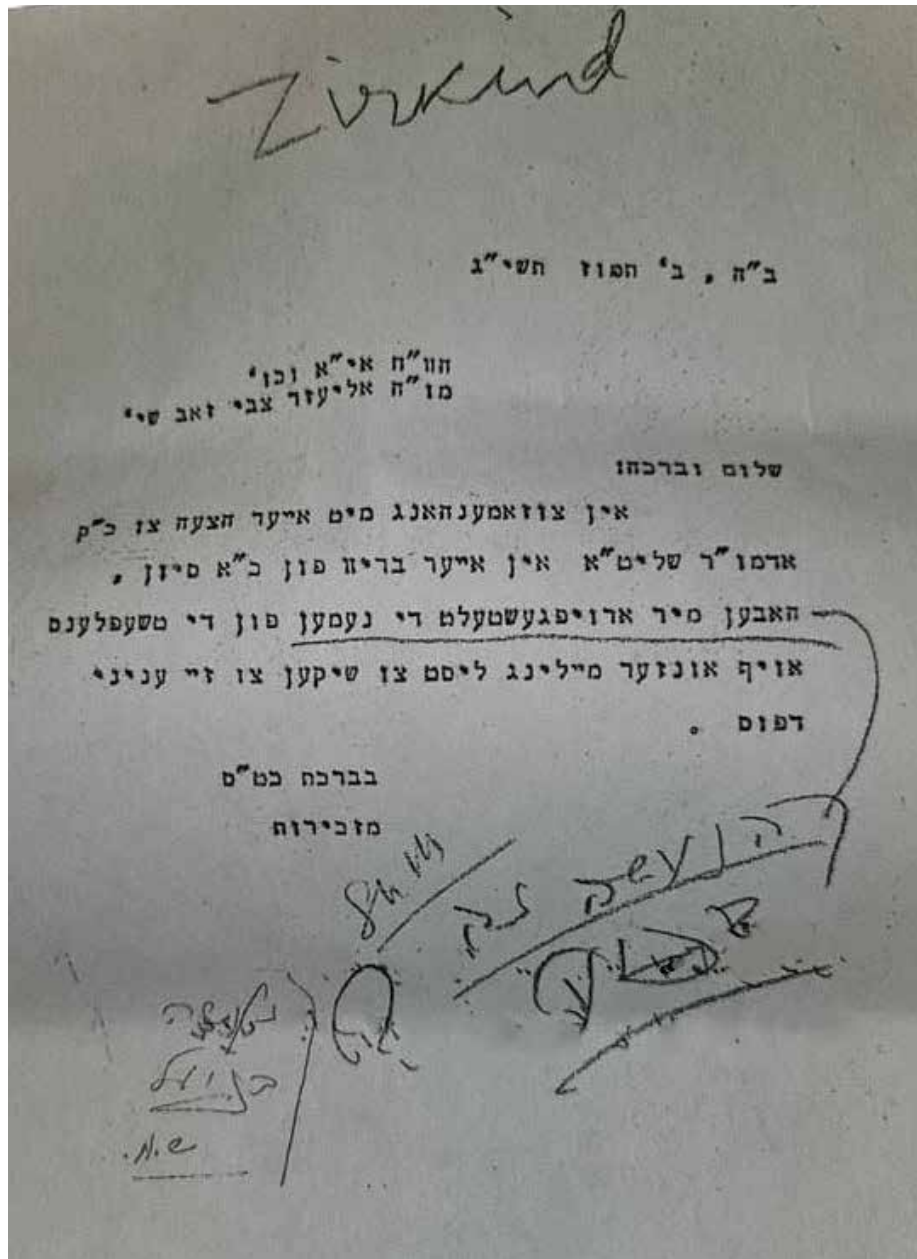 Zirkind
ב"ה, ב' תמוז תשי"ג
הוו"ח אי"א וכו'
מו"ה אליעזר צבי זאב שי'
שלום וברכה:
אין צוזאמענהאנג מיט אייער הצעה צו כ"ק
אדמו"ר שליט"א אין אייער בריוו פון כ"א סיון,
האבען מיר ארויפגעשטעלט די נעמען פון די טשעפלענס
אויף אונזער מיילינג ליסט צו שיקען צו זיי עניני
דפוס.
בברכה כט"ס
מזכירות
הנעשה זה
בפועל